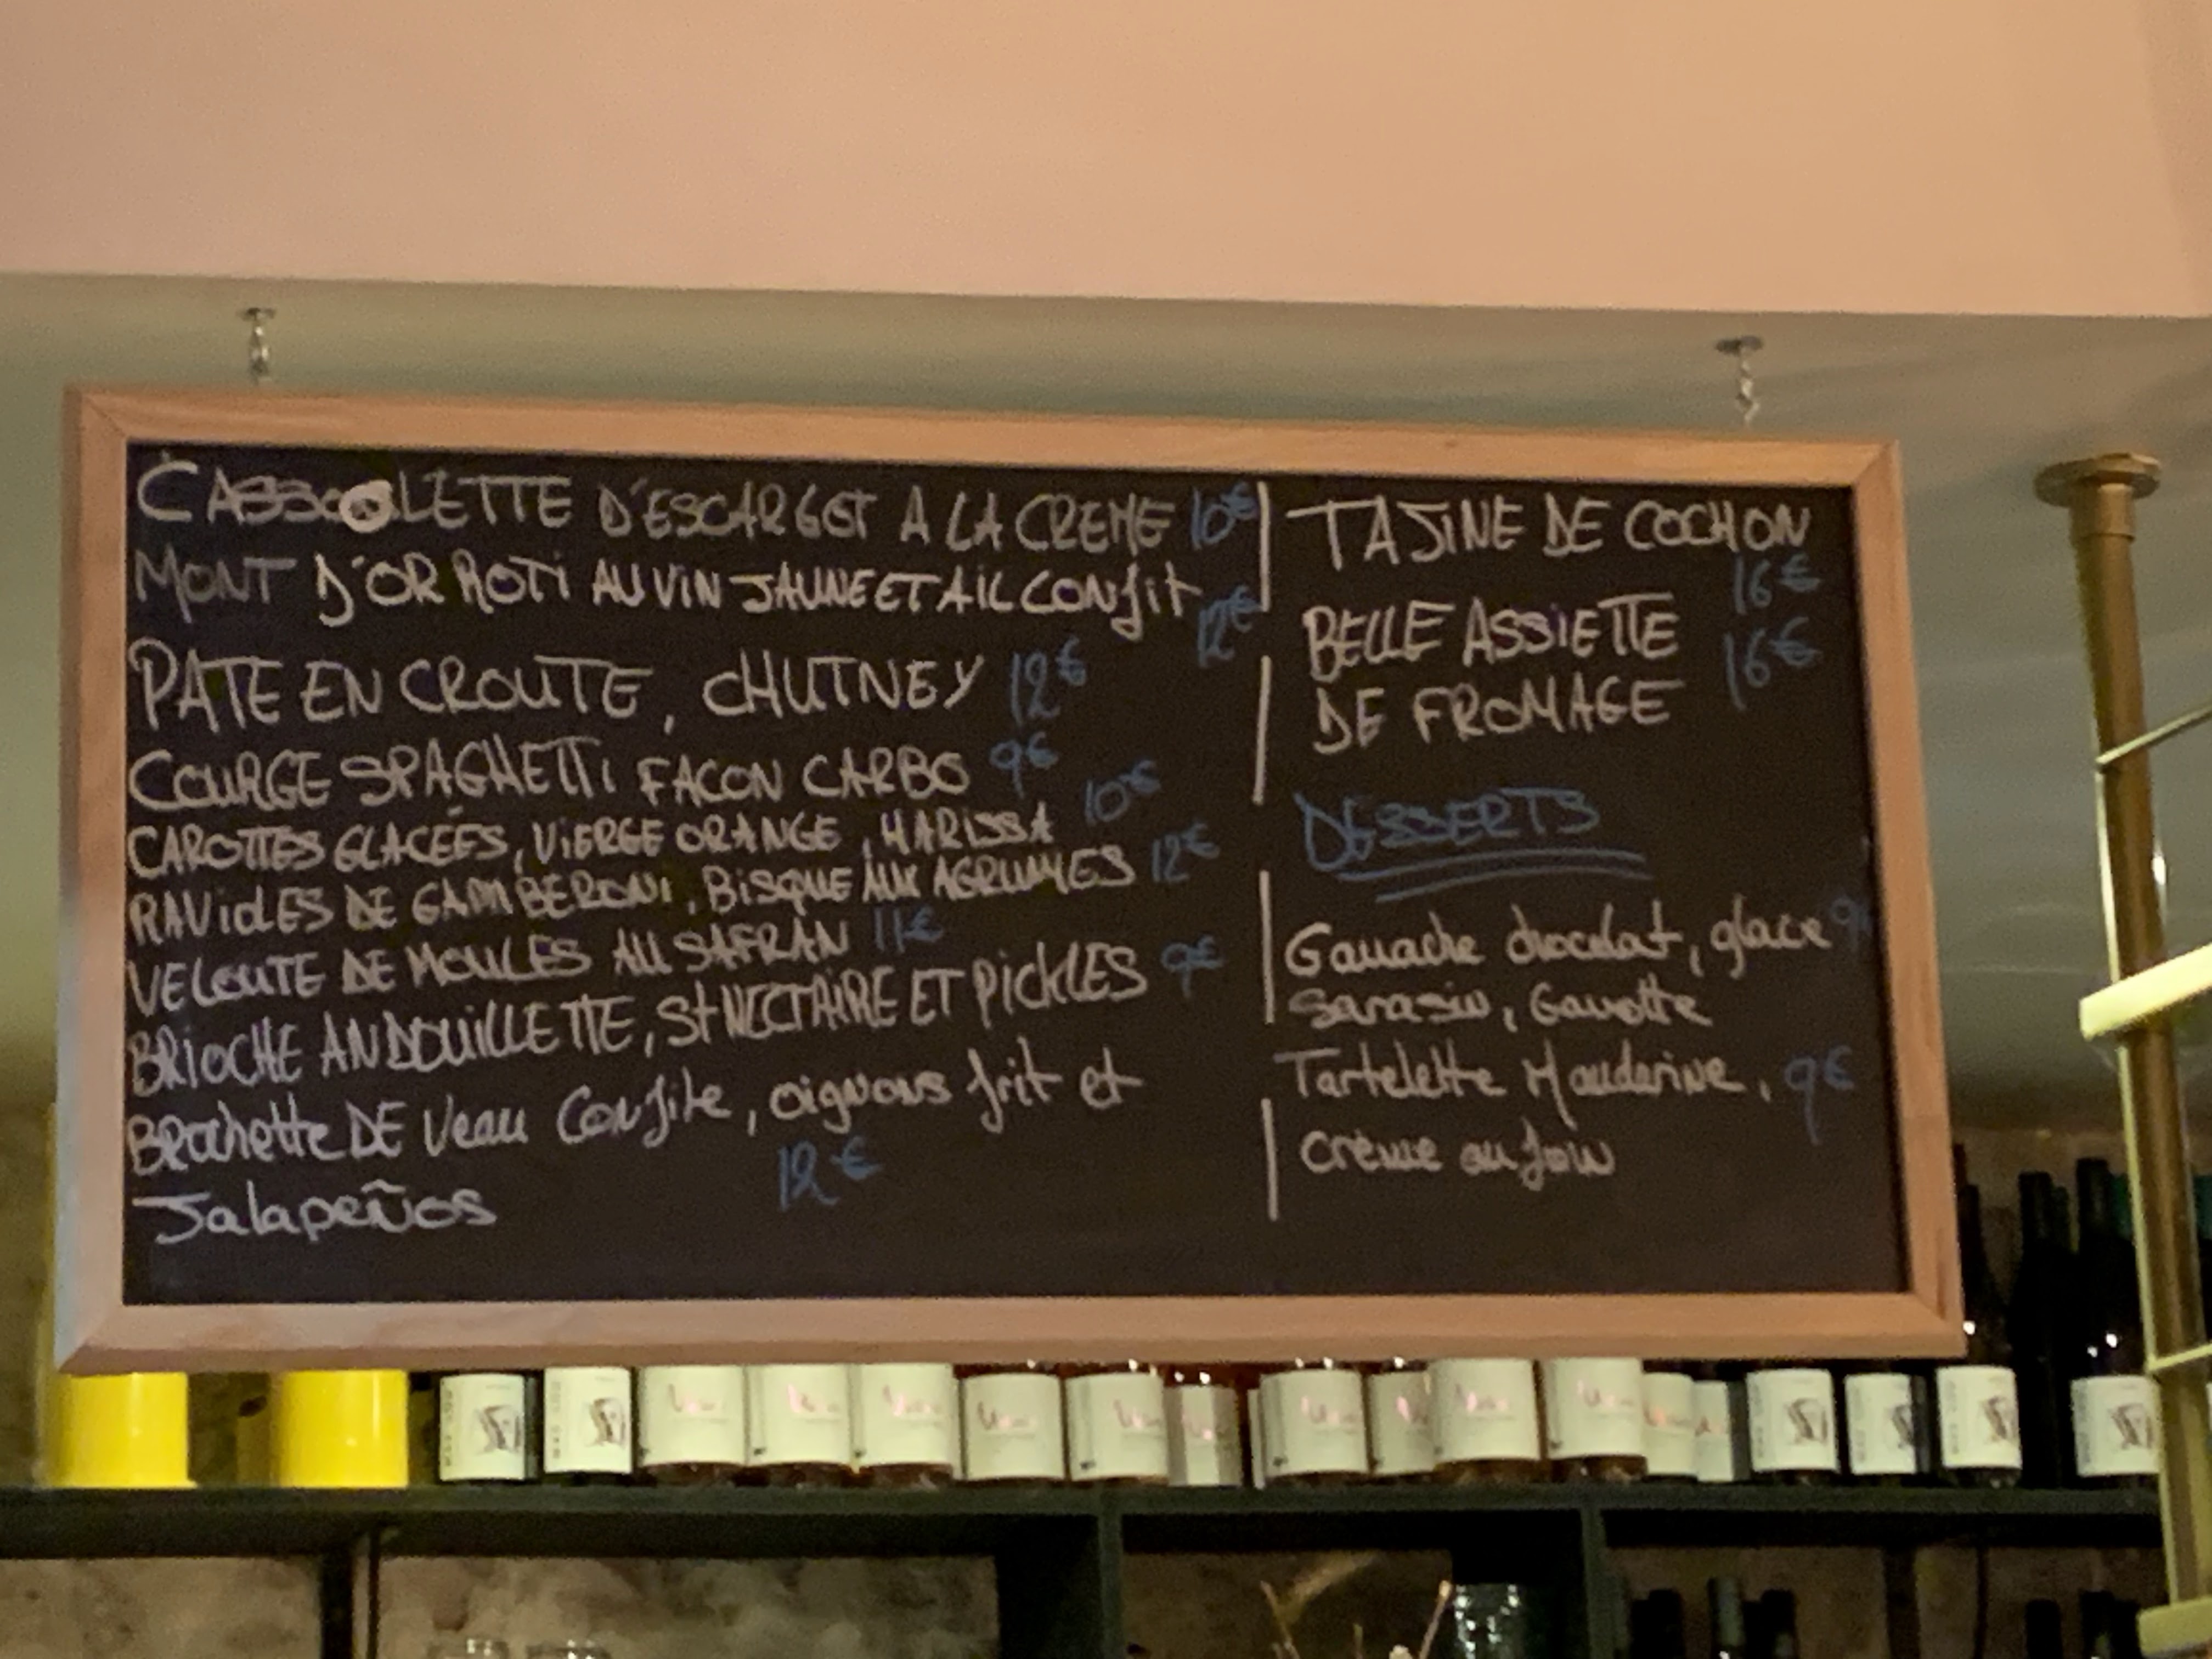 CASSOLETTE D'ESCARGOT A LA CREME 10€
MONT D'OR ROTI AU VIN JAUNE ET AIL CONfit 12€
PATE EN CROUTE, CHUTNEY 12€
COURGE SPAGHETTI FACON CARBO 9€
CAROTTES GLACÉES, VIERGE ORANGE, HARISSA 10€
RAVIOLES DE GAMBERONI, BISQUE AUX AGRUMES 12€
VELOUTE DE MOULES AU SAFRAN 11€
BRIOCHE ANDOUILLETTE, St NECTAIRE ET PICKLES 9€
BROchette DE Veau Confite, oignons frit et
Jalapeños 12€
TAJINE DE COCHON
16€
BELLE ASSIETTE 16€
DE FROMAGE
DESSERTS
Ganache chocolat, glace 9€
Sarasin, Gavotte
Tartelette Mandarine, 9€
crème au foin